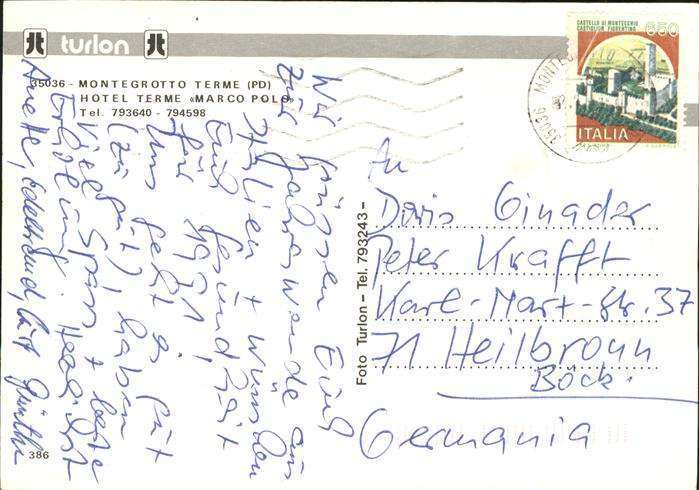 turlon
35036 - MONTEGROTTO TERME (PD)
HOTEL TERME «MARCO POLO»
Tel. 793640 - 794598
Wir grüssen Euch
zur Jahreswende aus
Italien + wünschen
Euch Gesundheit
für 1991,
Uns geht es gut
(zu gut), haben
viel Spass + beste
Erholung. Herzlichst
Anette, Edeltraud,
Foto Turlon - Tel. 793243 -
386
CASTELLO DI MONTECCHIO
CASTIGLION FIORENTINO
650
ITALIA
35036 MONTEG
An
Doris Ginader
Peter Krafft
Karl-Marx-Str. 37
71 Heilbronn
Böck.
Germania